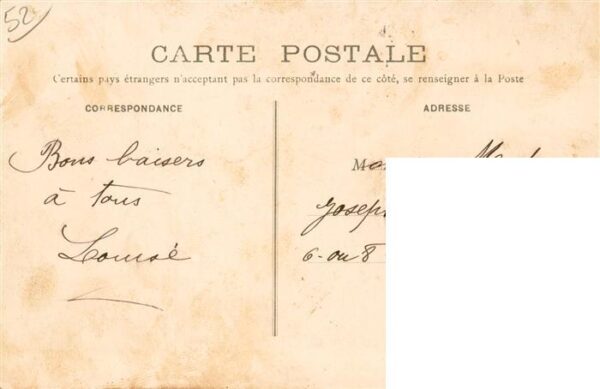 52
CARTE POSTALE
Certains pays étrangers n'acceptant pas la correspondance de ce côté, se renseigner à la Poste
CORRESPONDANCE
Bons baisers
à tous
Louisé
ADRESSE
6-ou 8